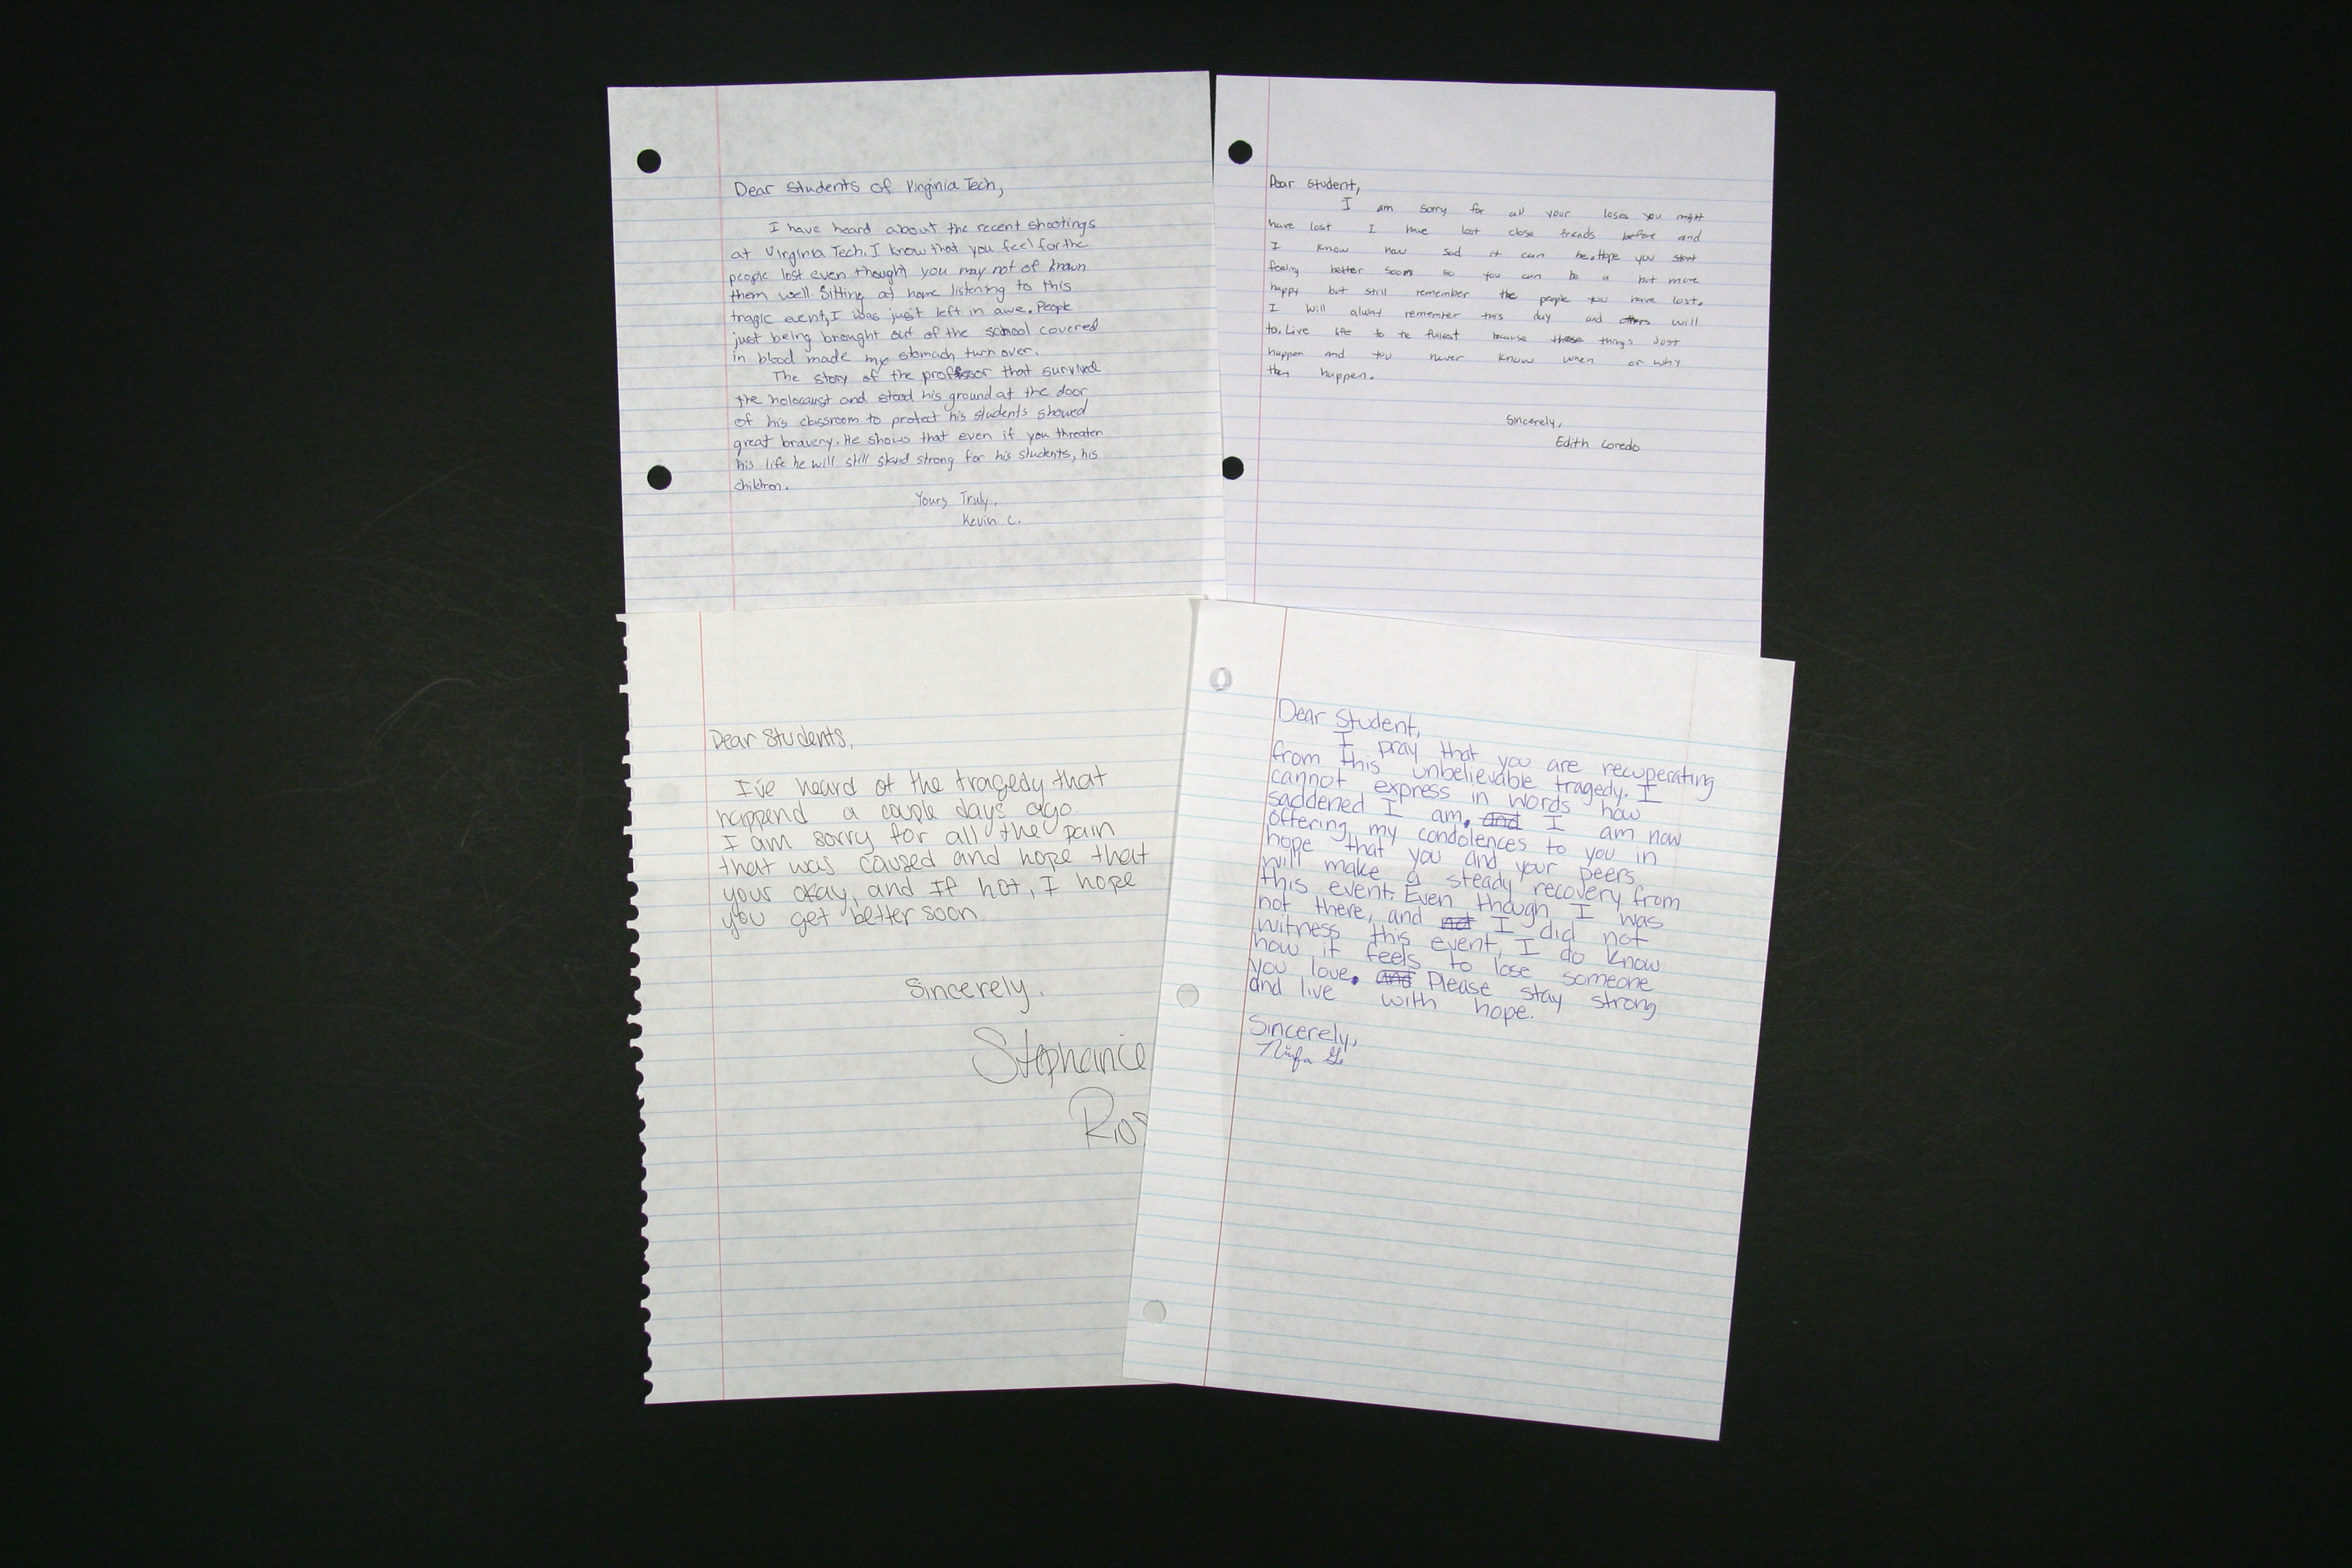 Dear Students of Virginia Tech,
I have heard about the recent shootings
at Virginia Tech. I know that you feel for the
people lost even thought you may not of known
them well. Sitting at home listening to this
tragic event, I was just left in awe. People
just being brought out of the school covered
in blood made my stomach turn over.
The story of the proffssor that survived
the holocaust and stood his ground at the door
of his classroom to protect his students showed
great bravery. He shows that even if you threaten
his life he will still stand strong for his students, his
children.
Yours Truly,
Kevin C.
Dear Student,
I am sorry for all your loses you might
have lost I have lost close friends before and
I know how sad it can be. Hope you start
feeling better soon so you can be a bit more
happy but still remember the people you have lost.
I will remember this day and others will
to. Live life to te fullest because these things Just
happen and you never know when or why
they happen.
Sincerely,
Edith Loredo
Dear Students,
I've heard of the tragedy that
happend a couple days ago.
I am sorry for all the pain
that was caused and hope that
your okay, and If not, I hope
you get better soon
Sincerely,
Stephanie
Rios
Dear Student,
I pray that you are recuperating
from this unbelievable tragedy. I
cannot express in words how
saddened I am. and I am now
offering my condolences to you in
hope that you and your peers
will make a steady recovery from
this event. Even though I was
not there, and not I did not
witness this event, I do know
how it feels to lose someone
you love. and Please stay strong
and live with hope.
Sincerely,